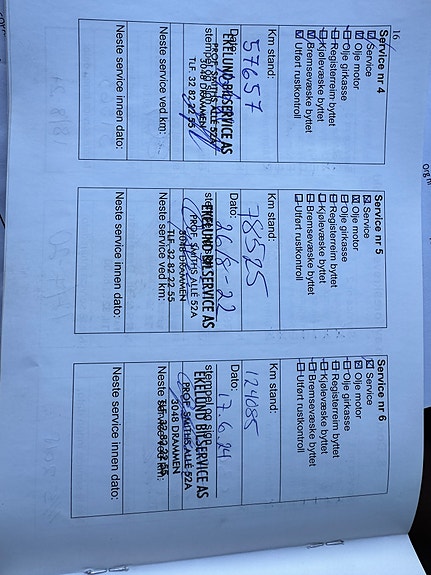 16
Service nr 4
☒ Service
☒ Olje motor
☐ Olje girkasse
☐ Registerreim byttet
☐ Kjølevæske byttet
☒ Bremsevæske byttet
☒ Utført rustkontroll
Km stand:
57657
Dato:
EKELUND BILSERVICE AS
PROF. SMITHS ALLÉ 52A
3048 DRAMMEN
TLF. 32 82 22 55
Neste service ved km:
Neste service innen dato:
Service nr 5
☒ Service
☒ Olje motor
☐ Olje girkasse
☐ Registerreim byttet
☐ Kjølevæske byttet
☐ Bremsevæske byttet
☐ Utført rustkontroll
Km stand:
78525
Dato:
26/8-22
EKELUND BILSERVICE AS
PROF. SMITHS ALLÉ 52A
3048 DRAMMEN
TLF. 32 82 22 55
Neste service ved km:
Neste service innen dato:
Service nr 6
☒ Service
☒ Olje motor
☐ Olje girkasse
☐ Registerreim byttet
☐ Kjølevæske byttet
☐ Bremsevæske byttet
☐ Utført rustkontroll
Km stand:
124085
Dato:
17.6.24
EKELUND BILSERVICE AS
PROF. SMITHS ALLÉ 52A
3048 DRAMMEN
TLF. 32 82 22 55
Neste service ved km:
Neste service innen dato: